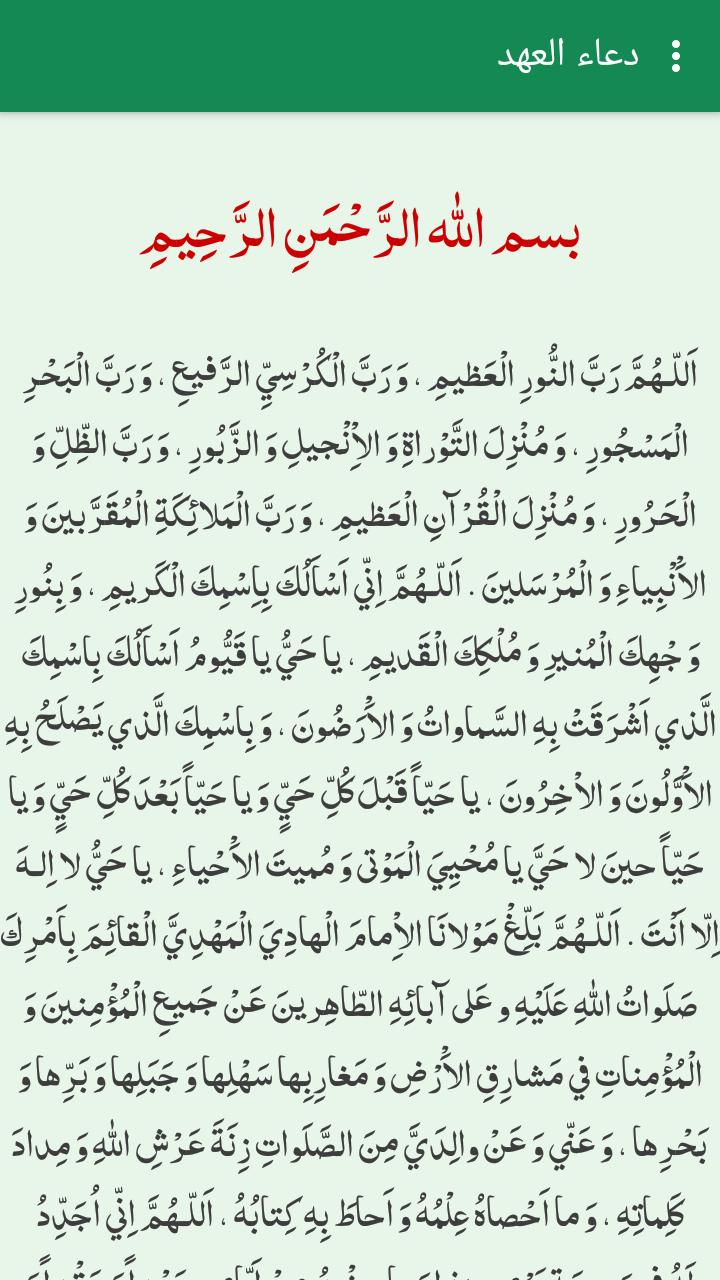 دعاء العهد
بسم الله الرَّحْمَنِ الرَّحِيمِ
اَللّـهُمَّ رَبَّ النُّورِ الْعَظيمِ ، وَ رَبَّ الْكُرْسِيِّ الرَّفيعِ ، وَ رَبَّ الْبَحْرِ
الْمَسْجُورِ ، وَ مُنْزِلَ التَّوْراةِ وَ الاِْنْجيلِ وَ الزَّبُورِ ، وَ رَبَّ الظِّلِّ وَ
الْحَرُورِ ، وَ مُنْزِلَ الْقُرْآنِ الْعَظيمِ ، وَ رَبَّ الْمَلائِكَةِ الْمُقَرَّبينَ وَ
الاَْنْبِياءِ وَ الْمُرْسَلينَ . اَللّـهُمَّ اِنّي اَسْاَلُكَ بِاِسْمِكَ الْكَريمِ ، وَ بِنُورِ
وَ جْهِكَ الْمُنيرِ وَ مُلْكِكَ الْقَديمِ ، يا حَيُّ يا قَيُّومُ اَسْاَلُكَ بِاسْمِكَ
الَّذي اَشْرَقَتْ بِهِ السَّماواتُ وَ الاَْرَضُونَ ، وَ بِاسْمِكَ الَّذي يَصْلَحُ بِهِ
الاَْوَّلُونَ وَ الاْخِرُونَ ، يا حَيّاً قَبْلَ كُلِّ حَيٍّ وَ يا حَيّاً بَعْدَ كُلِّ حَيٍّ وَ يا
حَيّاً حينَ لا حَيَّ يا مُحْيِيَ الْمَوْتى وَ مُميتَ الاَْحْياءِ ، يا حَيُّ لا اِلـهَ
اِلّا اَنْتَ . اَللّـهُمَّ بَلِّغْ مَوْلانَا الاِْمامَ الْهادِيَ الْمَهْدِيَّ الْقائِمَ بِاَمْرِكَ
صَلَواتُ اللهِ عَلَيْهِ و عَلى آبائِهِ الطّاهِرينَ عَنْ جَميعِ الْمُؤْمِنينَ وَ
الْمُؤْمِناتِ في مَشارِقِ الاَْرْضِ وَ مَغارِبِها سَهْلِها وَ جَبَلِها وَ بَرِّها وَ
بَحْرِها ، وَ عَنّي وَ عَنْ والِدَيَّ مِنَ الصَّلَواتِ زِنَةَ عَرْشِ اللهِ وَ مِدادَ
كَلِماتِهِ ، وَ ما اَحْصاهُ عِلْمُهُ وَ اَحاطَ بِهِ كِتابُهُ ، اَللّـهُمَّ اِنّي اُجَدِّدُ